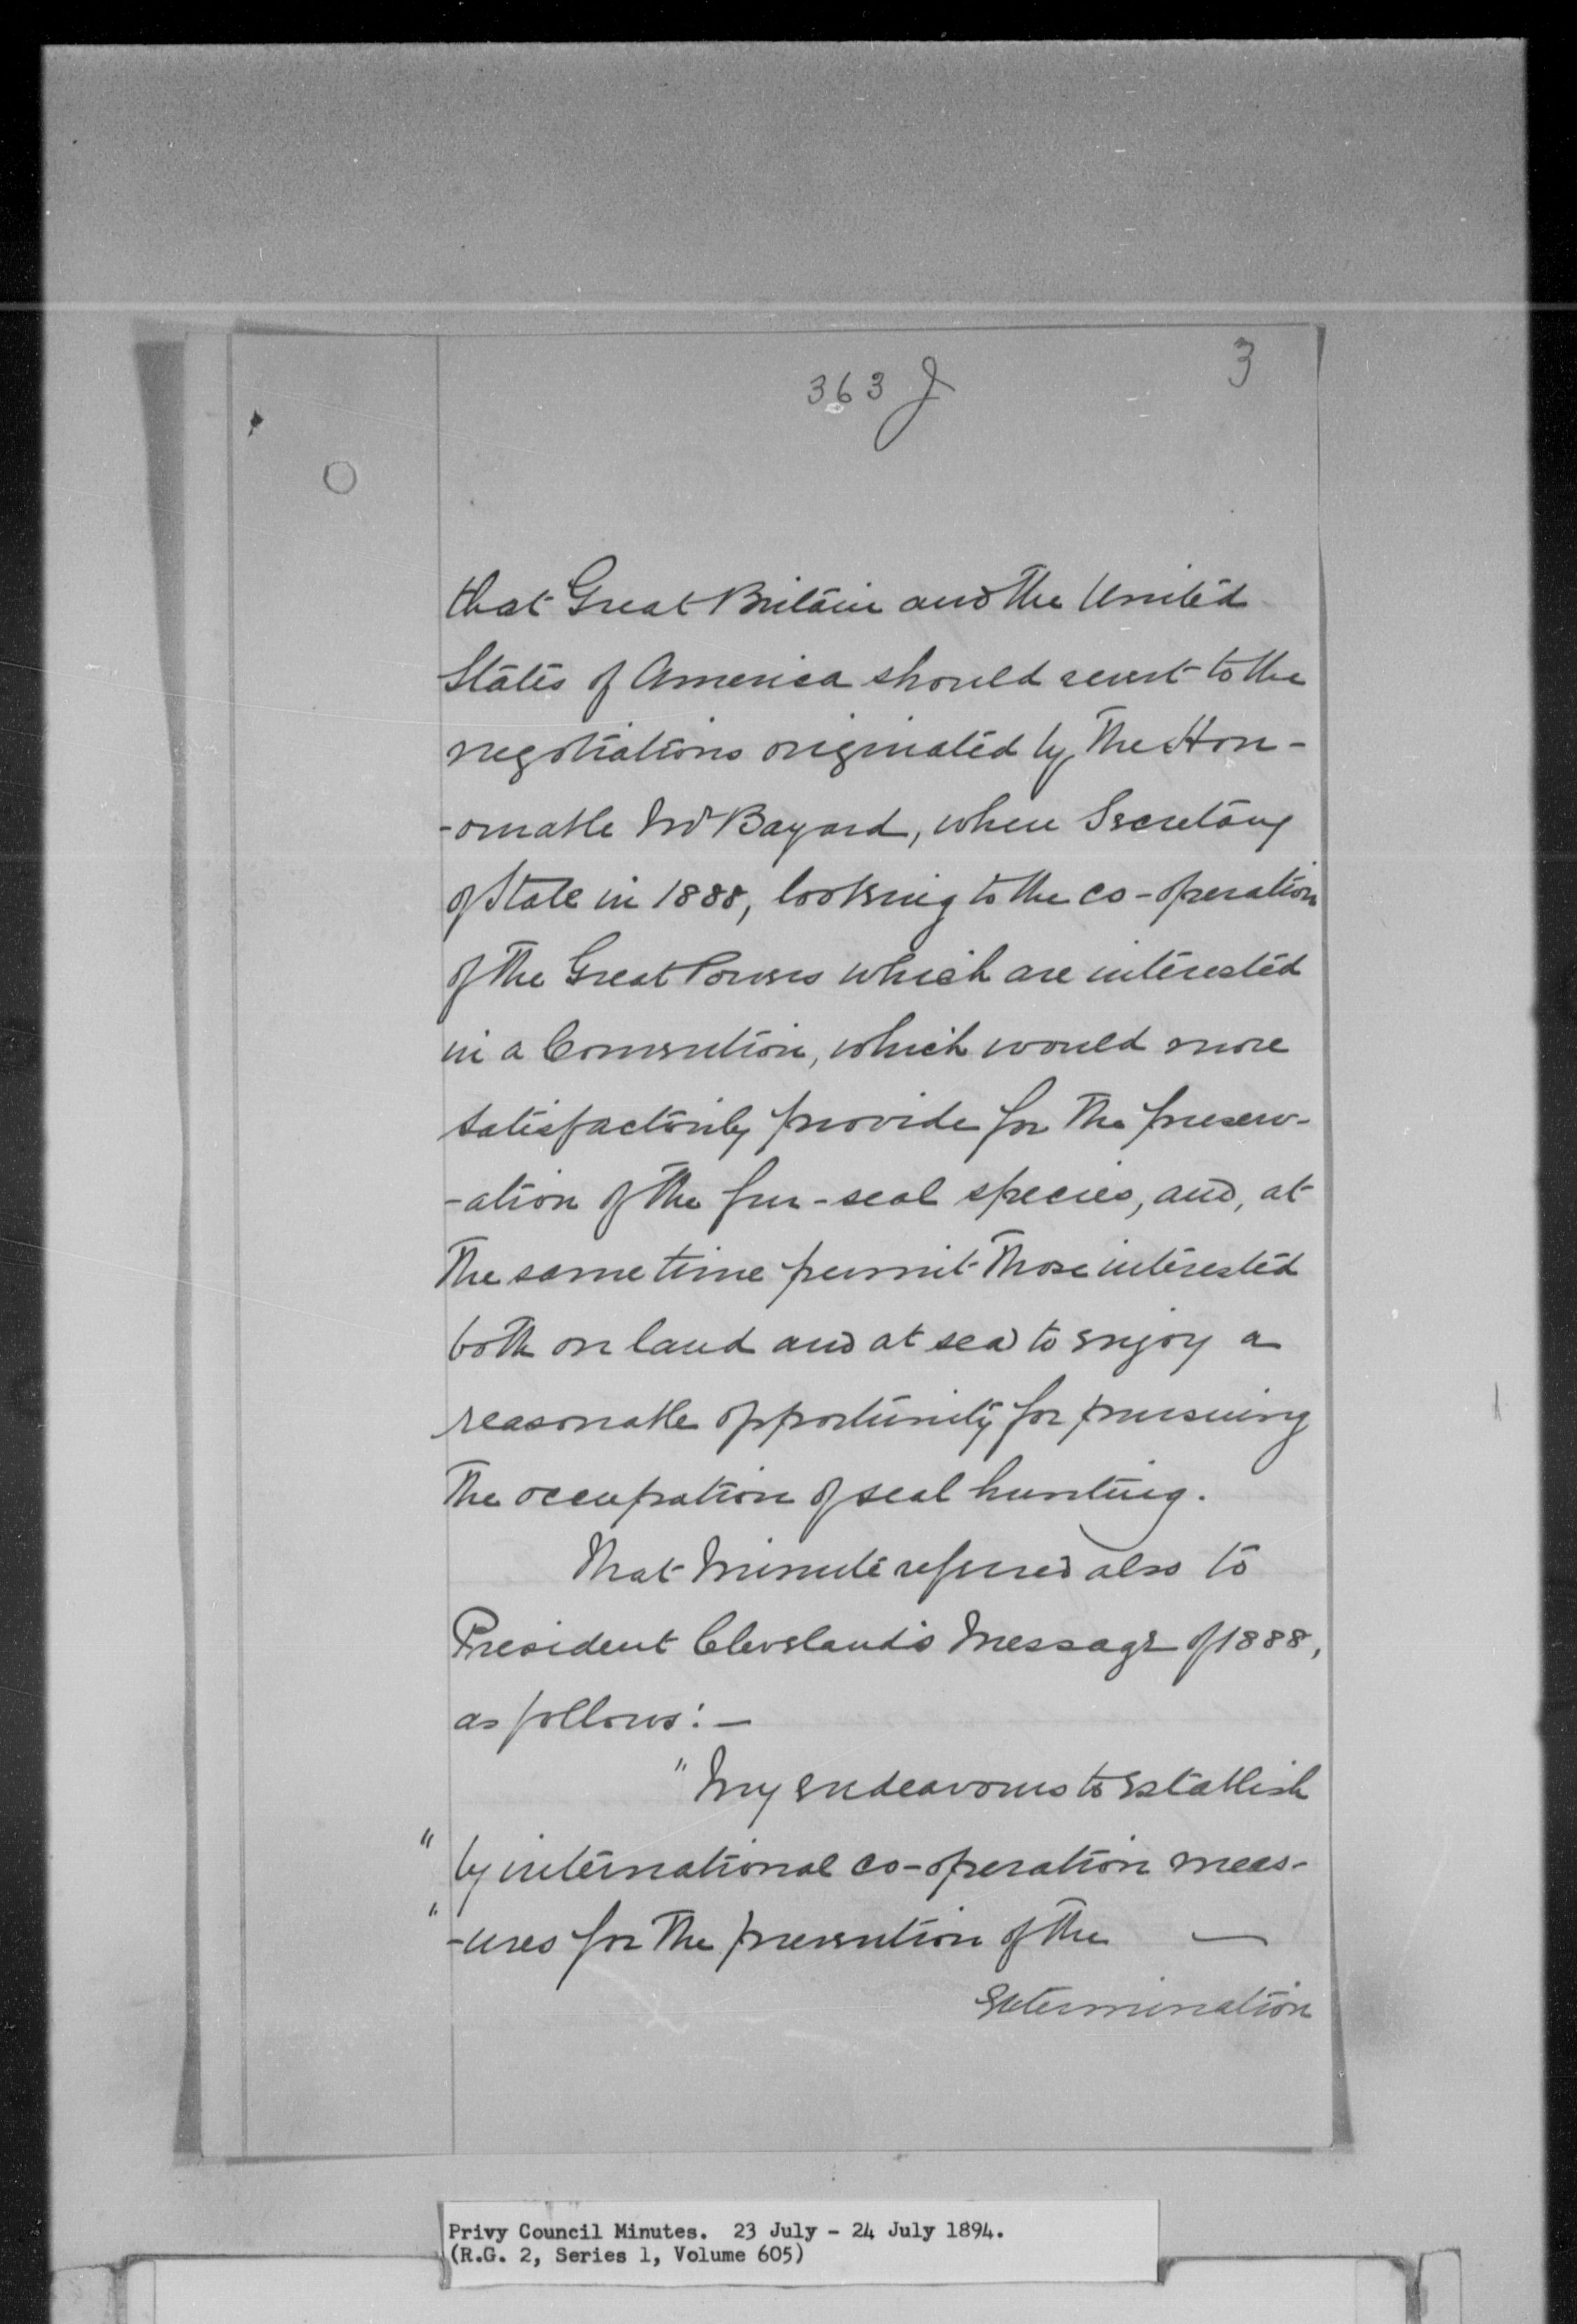 363 J
3
that Great Britain and the United
States of America should revert to the
negotiations originated by the Hon-
-ourable Mr Bayard, when Secretary
of State in 1888, looking to the co-operation
of the Great Powers which are interested
in a Convention, which would more
satisfactorily provide for the preserv-
-ation of the fur-seal species, and, at
the same time permit those interested
both on land and at sea to enjoy a
reasonable opportunity for pursuing
the occupation of seal hunting.
That Minute referred also to
President Cleveland's Message of 1888,
as follows:—
"My endeavours to establish
"by international co-operation meas-
"-ures for the prevention of the —
extermination
Privy Council Minutes. 23 July - 24 July 1894.
(R.G. 2, Series 1, Volume 605)